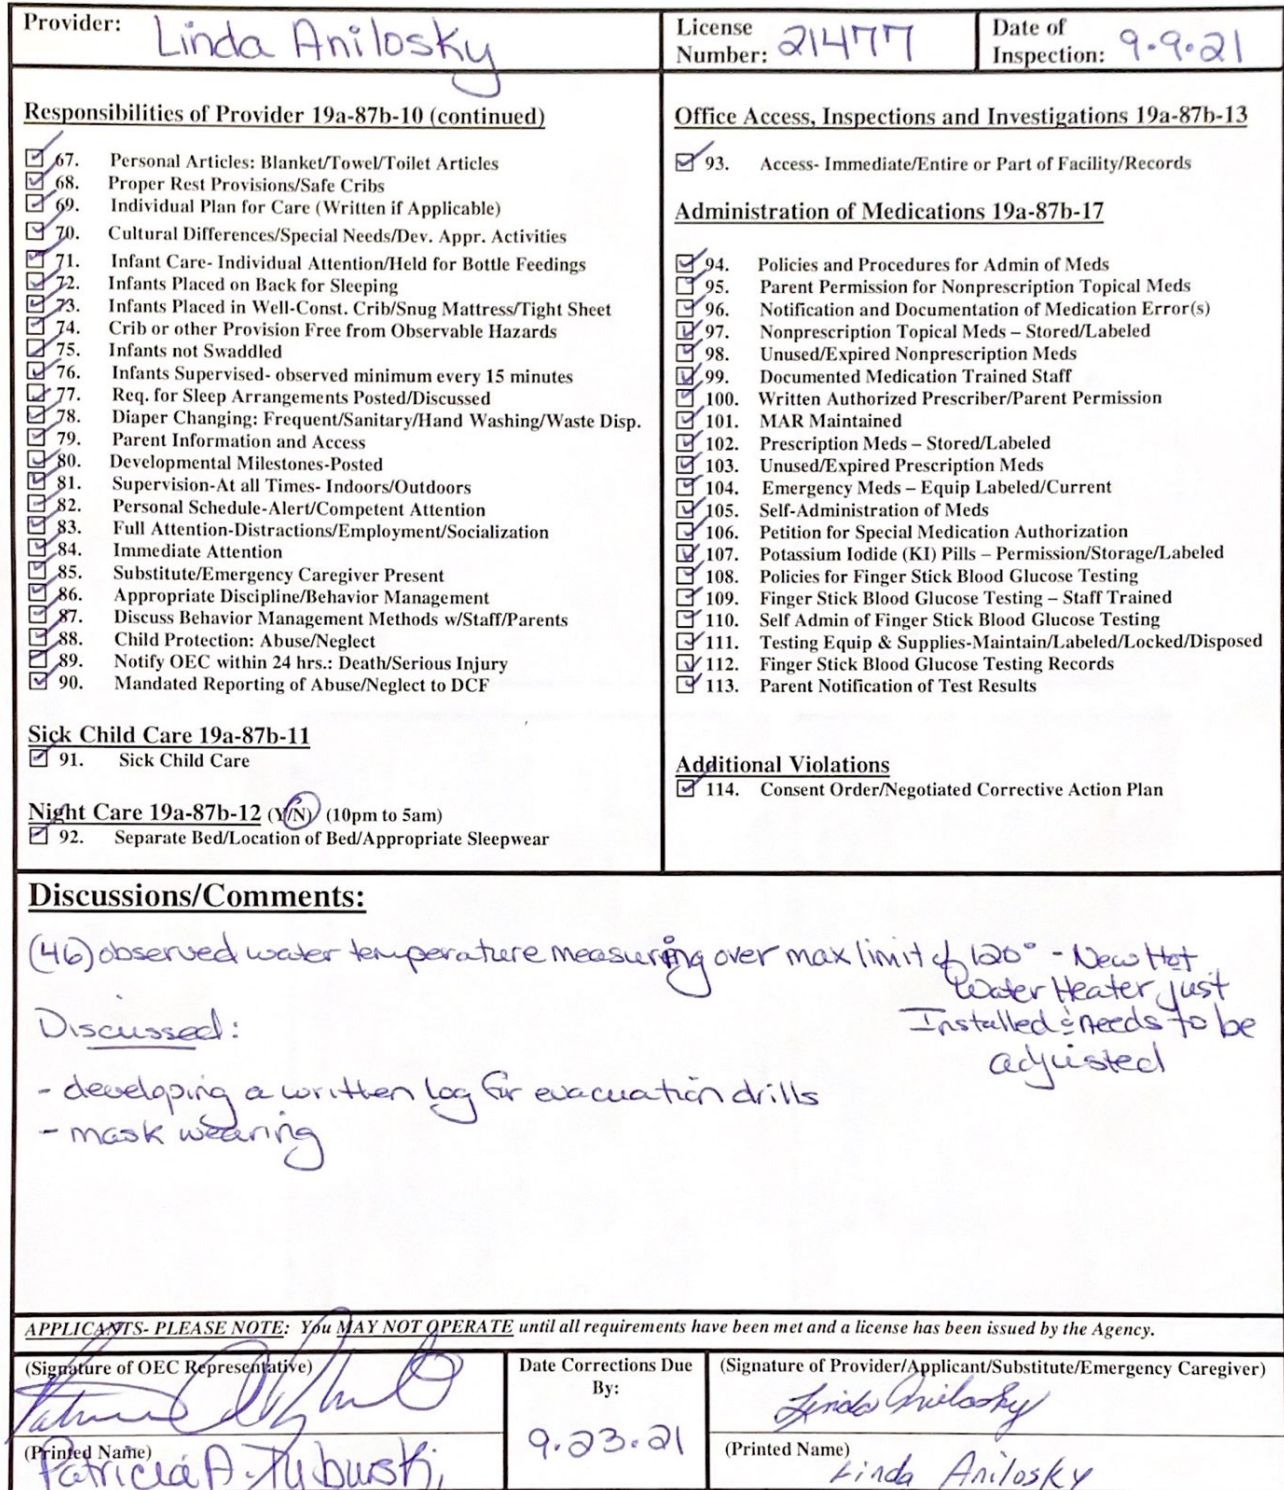 Provider: Linda Anilosky
License Number: 21477
Date of Inspection: 9.9.21
Responsibilities of Provider 19a-87b-10 (continued)
67. Personal Articles: Blanket/Towel/Toilet Articles
68. Proper Rest Provisions/Safe Cribs
69. Individual Plan for Care (Written if Applicable)
70. Cultural Differences/Special Needs/Dev. Appr. Activities
71. Infant Care- Individual Attention/Held for Bottle Feedings
72. Infants Placed on Back for Sleeping
73. Infants Placed in Well-Const. Crib/Snug Mattress/Tight Sheet
74. Crib or other Provision Free from Observable Hazards
75. Infants not Swaddled
76. Infants Supervised- observed minimum every 15 minutes
77. Req. for Sleep Arrangements Posted/Discussed
78. Diaper Changing: Frequent/Sanitary/Hand Washing/Waste Disp.
79. Parent Information and Access
80. Developmental Milestones-Posted
81. Supervision-At all Times- Indoors/Outdoors
82. Personal Schedule-Alert/Competent Attention
83. Full Attention-Distractions/Employment/Socialization
84. Immediate Attention
85. Substitute/Emergency Caregiver Present
86. Appropriate Discipline/Behavior Management
87. Discuss Behavior Management Methods w/Staff/Parents
88. Child Protection: Abuse/Neglect
89. Notify OEC within 24 hrs.: Death/Serious Injury
90. Mandated Reporting of Abuse/Neglect to DCF
Sick Child Care 19a-87b-11
91. Sick Child Care
Night Care 19a-87b-12 (Y/N) (10pm to 5am)
92. Separate Bed/Location of Bed/Appropriate Sleepwear
Office Access, Inspections and Investigations 19a-87b-13
93. Access- Immediate/Entire or Part of Facility/Records
Administration of Medications 19a-87b-17
94. Policies and Procedures for Admin of Meds
95. Parent Permission for Nonprescription Topical Meds
96. Notification and Documentation of Medication Error(s)
97. Nonprescription Topical Meds – Stored/Labeled
98. Unused/Expired Nonprescription Meds
99. Documented Medication Trained Staff
100. Written Authorized Prescriber/Parent Permission
101. MAR Maintained
102. Prescription Meds – Stored/Labeled
103. Unused/Expired Prescription Meds
104. Emergency Meds – Equip Labeled/Current
105. Self-Administration of Meds
106. Petition for Special Medication Authorization
107. Potassium Iodide (KI) Pills – Permission/Storage/Labeled
108. Policies for Finger Stick Blood Glucose Testing
109. Finger Stick Blood Glucose Testing – Staff Trained
110. Self Admin of Finger Stick Blood Glucose Testing
111. Testing Equip & Supplies-Maintain/Labeled/Locked/Disposed
112. Finger Stick Blood Glucose Testing Records
113. Parent Notification of Test Results
Additional Violations
114. Consent Order/Negotiated Corrective Action Plan
Discussions/Comments:
(46) observed water temperature measuring over max limit of 120° - New Hot
Water Heater just
Installed & needs to be
adjusted
Discussed:
- developing a written log for evacuation drills
- mask wearing
APPLICANTS- PLEASE NOTE: You MAY NOT OPERATE until all requirements have been met and a license has been issued by the Agency.
(Signature of OEC Representative)
(Printed Name)
Patricia A.
Date Corrections Due
By:
9.23.21
(Signature of Provider/Applicant/Substitute/Emergency Caregiver)
Linda Anilosky
(Printed Name)
Linda Anilosky